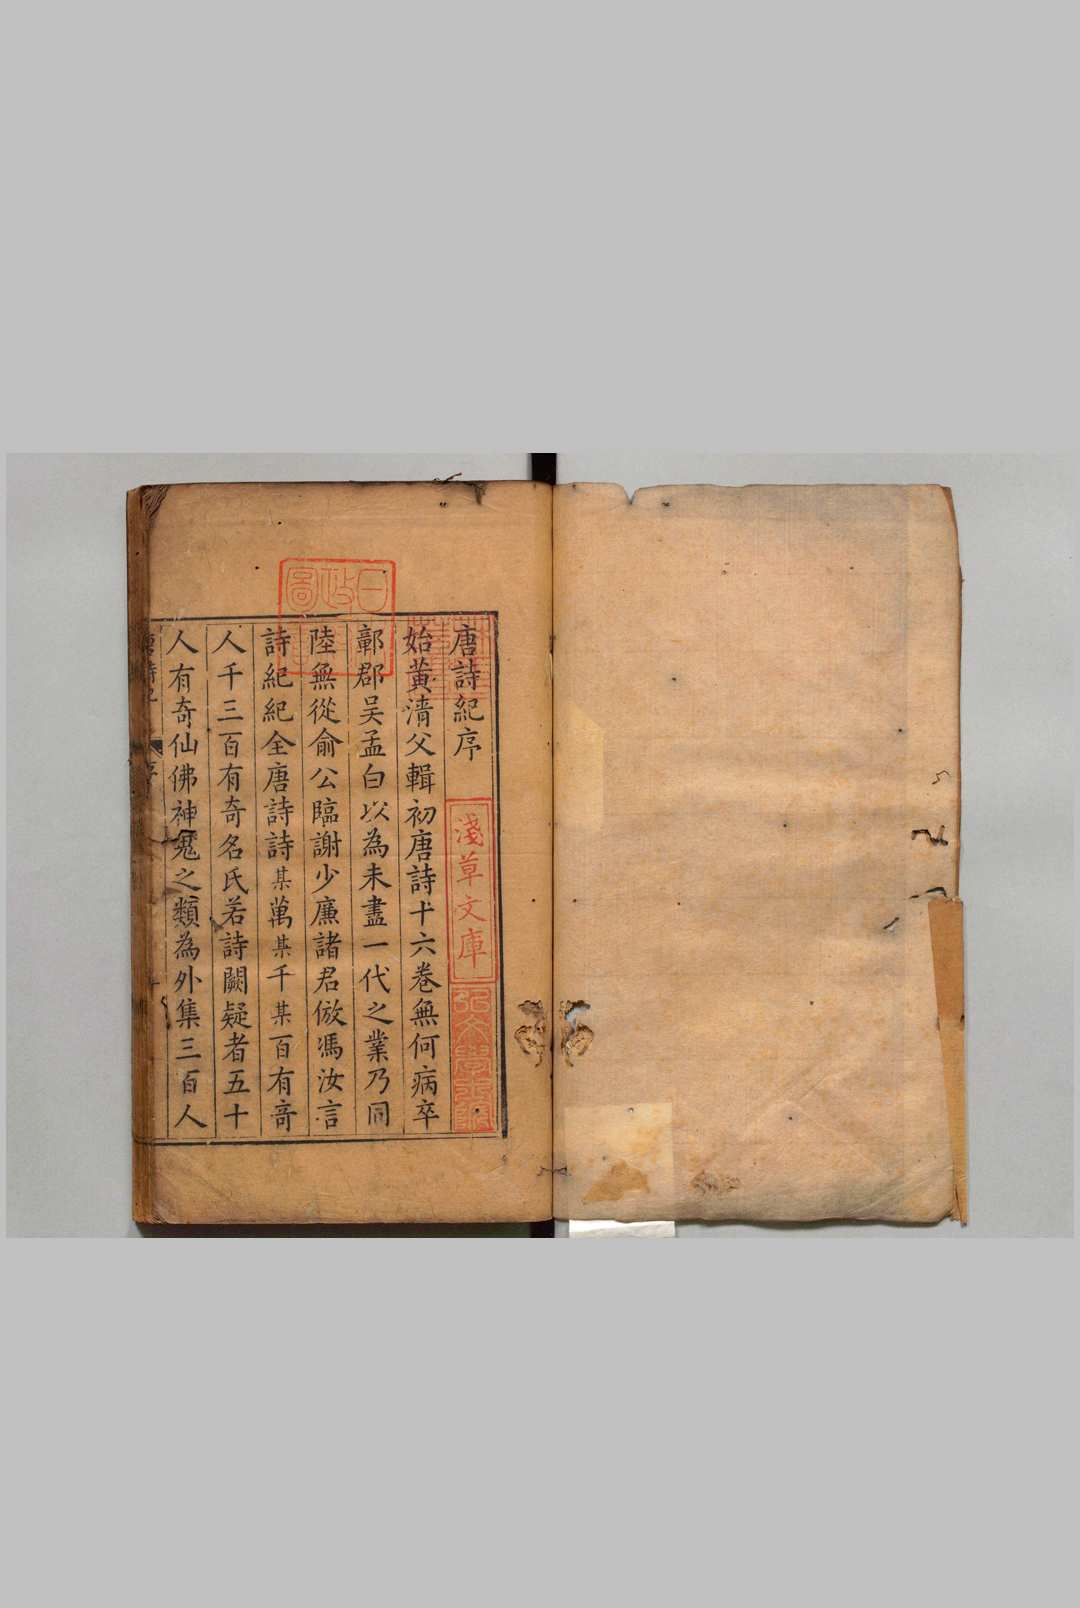 唐詩紀序
始黄清父輯初唐詩十六卷無何病卒
鄣郡吴孟白以為未盡一代之業乃同
陸無從俞公臨謝少廉諸君倣馮汝言
詩紀紀全唐詩詩某萬某千某百有竒
人千三百有奇名氏若詩闕疑者五十
人有奇仙佛神鬼之類為外集三百人
淺草文庫
弘文學士院